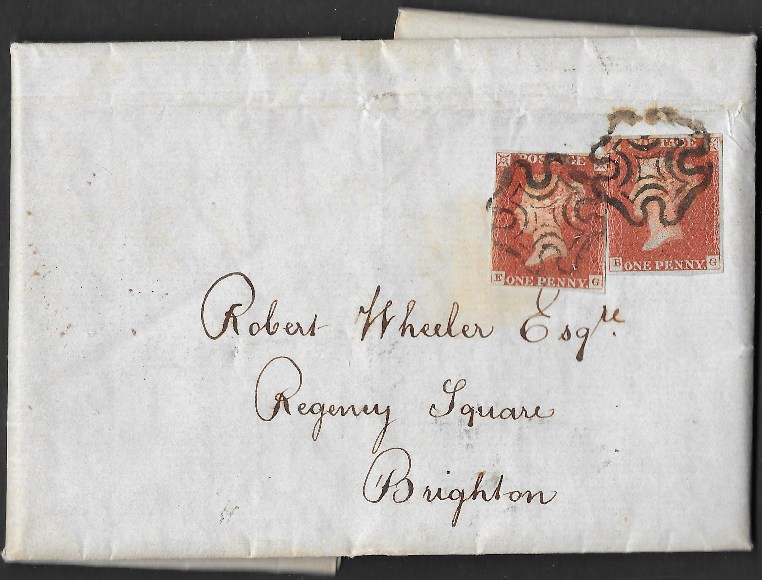 POSTAGE
ONE PENNY
E G
TAGE
ONE PENNY
B G
Robert Wheeler Esqre.
Regency Square
Brighton